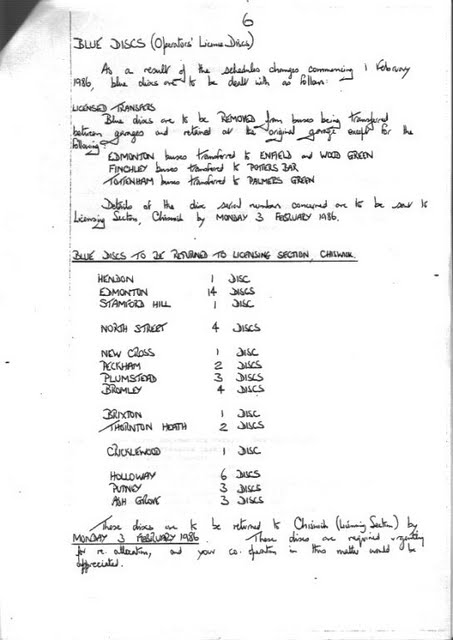 6
BLUE DISCS (Operators' Licence Discs)
As a result of the schedules changes commencing 1 February
1986, blue discs are to be dealt with as follows:
LICENSED TRANSFERS
Blue discs are to be REMOVED from buses being transferred
between garages and retained at the original garage except for the
following:
EDMONTON buses transferred to ENFIELD and WOOD GREEN
FINCHLEY buses transferred to POTTERS BAR
TOTTENHAM buses transferred to PALMERS GREEN
Details of the disc serial numbers concerned are to be sent to
Licensing Section, Chiswick by MONDAY 3 FEBRUARY 1986.
BLUE DISCS TO BE RETURNED TO LICENSING SECTION, CHISWICK.
HENDON 1 DISC
EDMONTON 14 DISCS
STAMFORD HILL 1 DISC
NORTH STREET 4 DISCS
NEW CROSS 1 DISC
PECKHAM 2 DISCS
PLUMSTEAD 3 DISCS
BROMLEY 4 DISCS
BRIXTON 1 DISC
THORNTON HEATH 2 DISCS
CRICKLEWOOD 1 DISC
HOLLOWAY 6 DISCS
PUTNEY 3 DISCS
ASH GROVE 3 DISCS
These discs are to be returned to Chiswick (Licensing Section) by
MONDAY 3 FEBRUARY 1986. These discs are required urgently
for re-allocation, and your co-operation in this matter would be
appreciated.